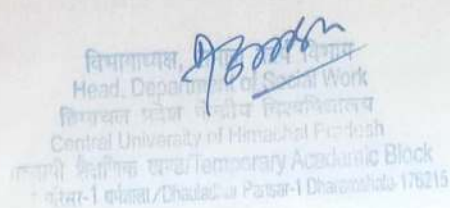 विभागाध्यक्ष, विभाग
Head, Department of Social Work
हिमाचल प्रदेश केन्द्रीय विश्वविद्यालय
Central University of Himachal Pradesh
शैक्षणिक खण्ड/Temporary Academic Block
परिसर-1 धर्मशाला/Dhauladhar Parisar-1 Dharamshala-176215